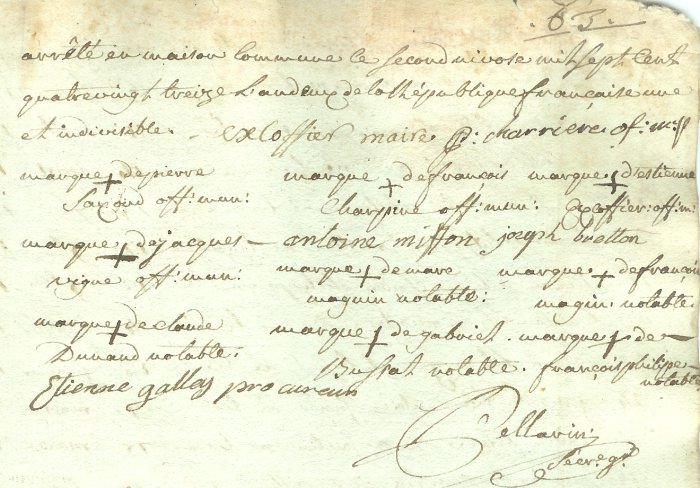 63.
arrêté en maison commune le second nivose mil sept cent
quatrevingt treize L'an deux de la République francaise une
et indivisible. - excoffier maire P: charriere of: m:p
marque + de pierre marque + de françois marque + d'estienne
Saxoud off: mun: Charpine off: mun: Excoffier: off: m:
marque + de jacques - antoine miffon joseph bretton
vigne off: mun: marque + de marc marque + de françois
maguin notable: magin. notable.
marque + de claude marque + de gabriel. marque + de -
Dunand notable. Bussat notable. françois philippe -
notable
Etienne gallay procureur
Pellarin:
Secr. gr.